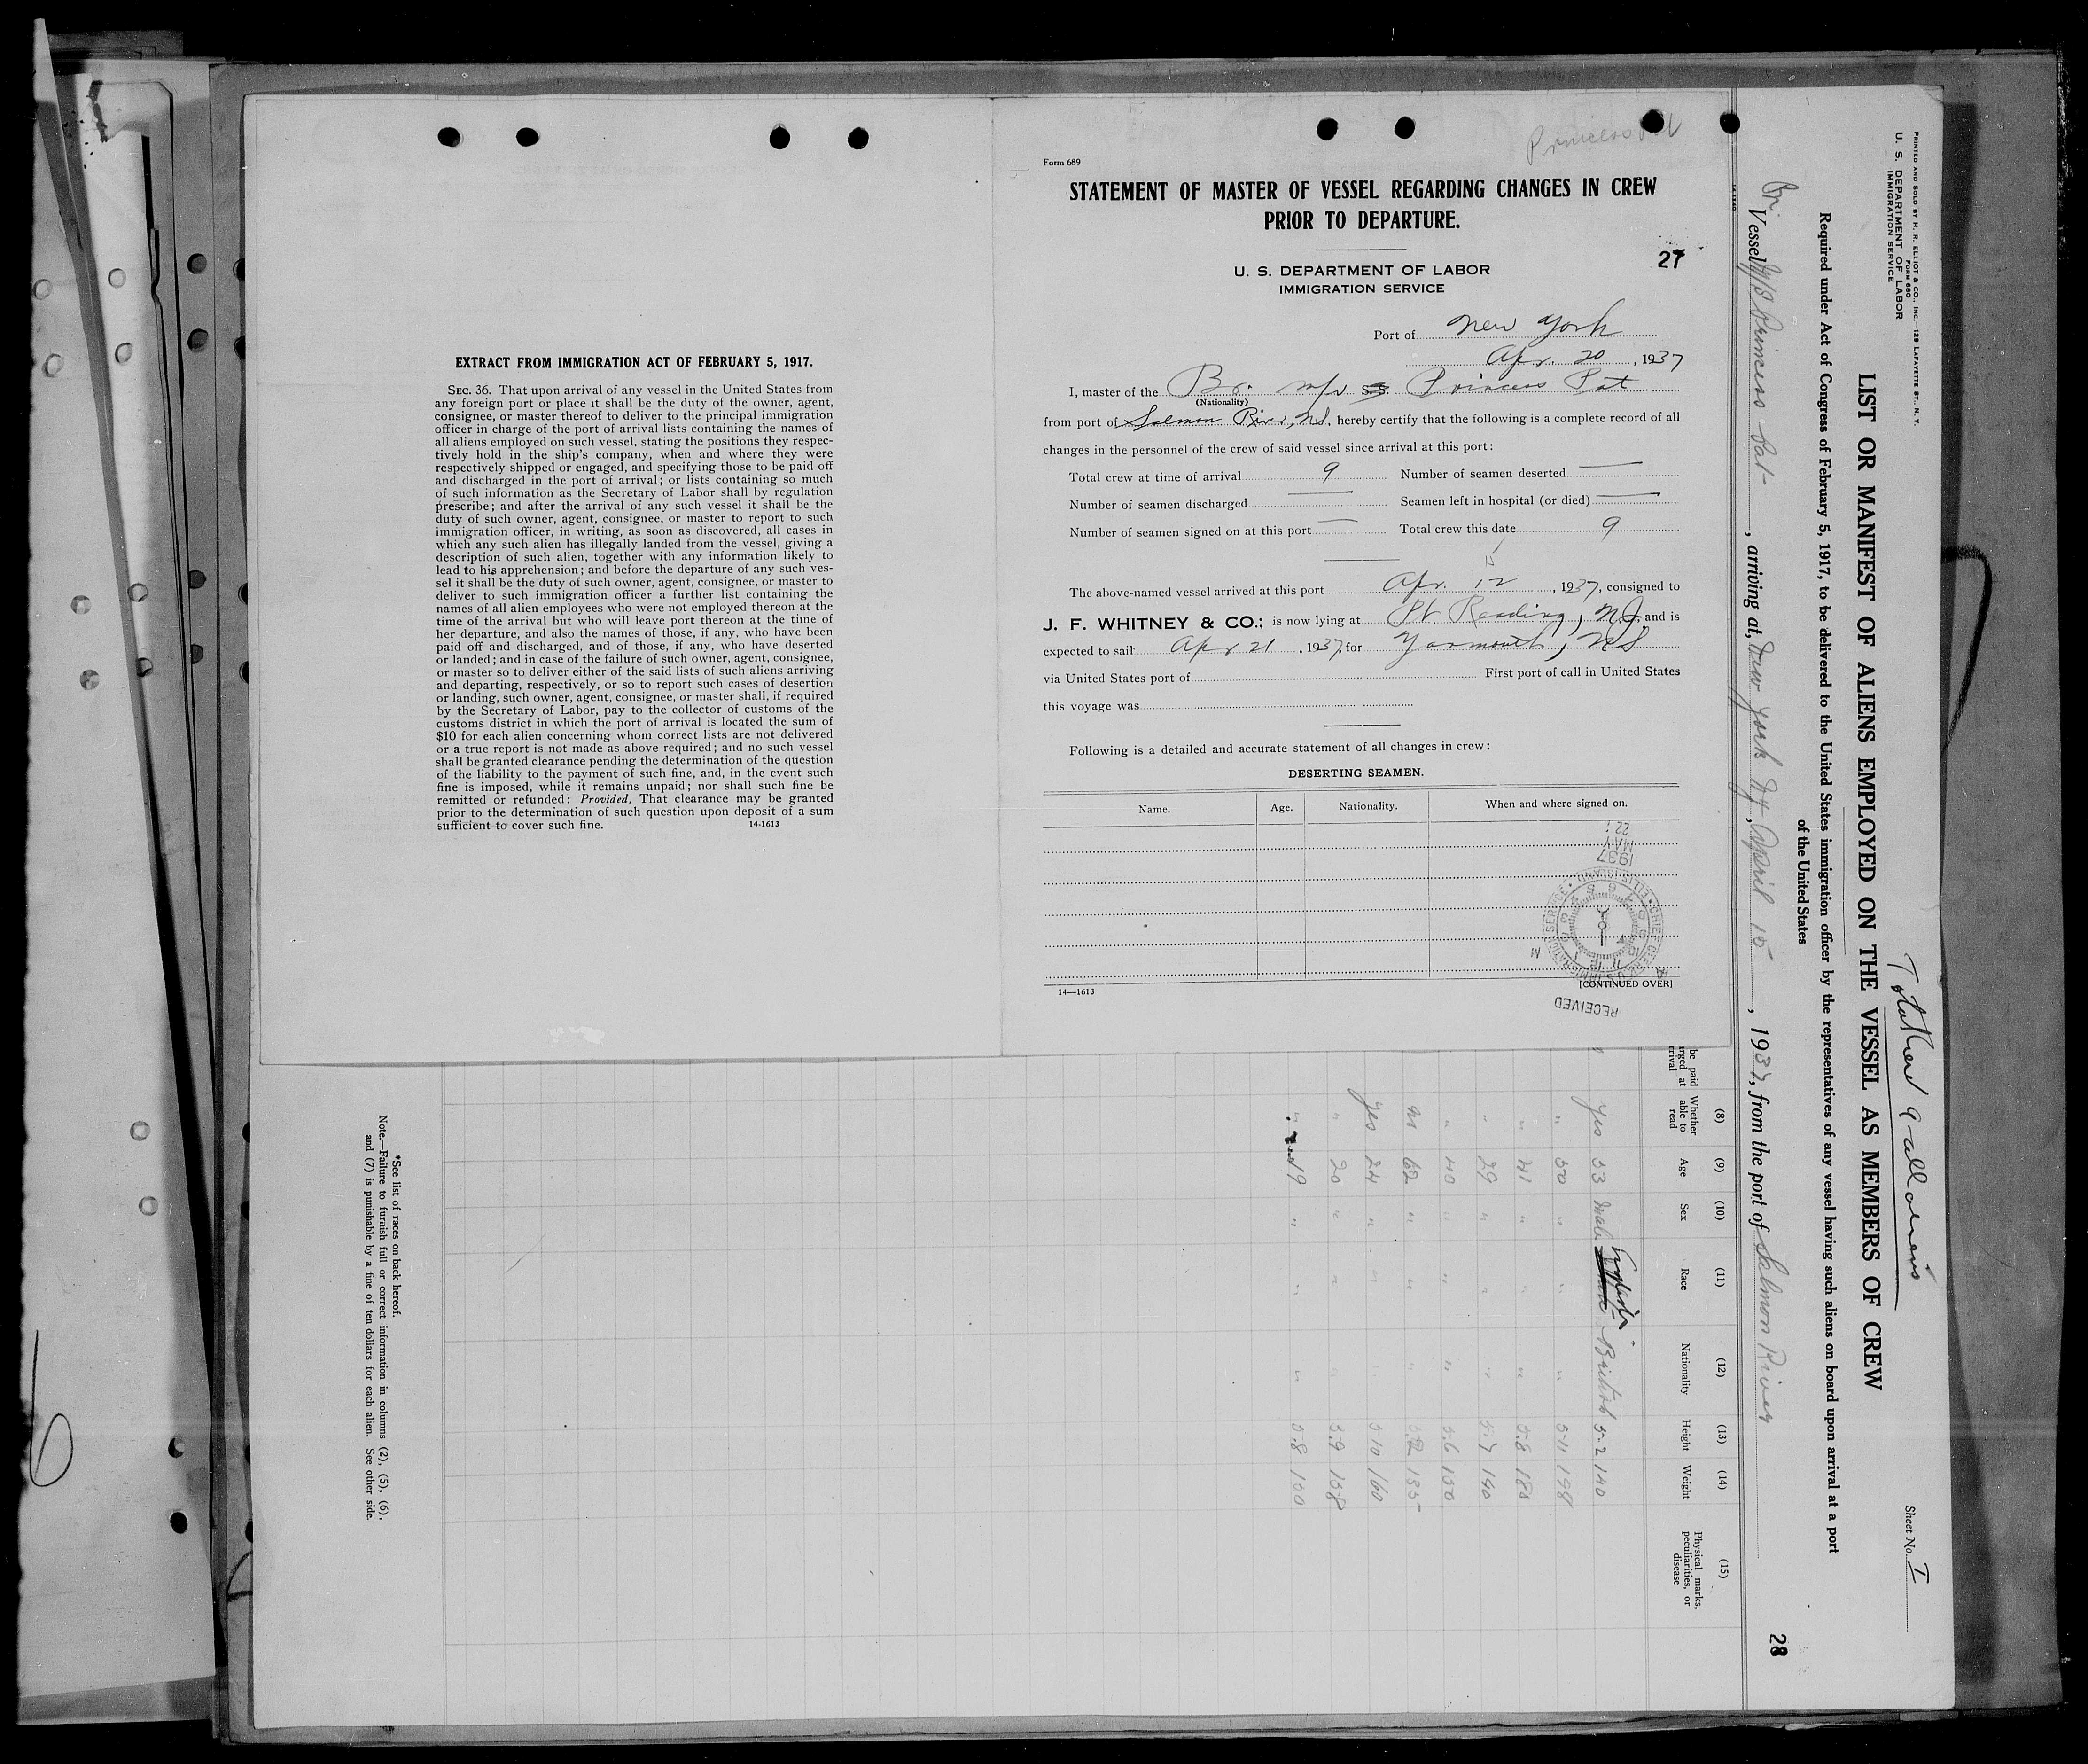 EXTRACT FROM IMMIGRATION ACT OF FEBRUARY 5, 1917.
SEC. 36. That upon arrival of any vessel in the United States from
any foreign port or place it shall be the duty of the owner, agent,
consignee, or master thereof to deliver to the principal immigration
officer in charge of the port of arrival lists containing the names of
all aliens employed on such vessel, stating the positions they respec-
tively hold in the ship's company, when and where they were
respectively shipped or engaged, and specifying those to be paid off
and discharged in the port of arrival; or lists containing so much
of such information as the Secretary of Labor shall by regulation
prescribe; and after the arrival of any such vessel it shall be the
duty of such owner, agent, consignee, or master to report to such
immigration officer, in writing, as soon as discovered, all cases in
which any such alien has illegally landed from the vessel, giving a
description of such alien, together with any information likely to
lead to his apprehension; and before the departure of any such ves-
sel it shall be the duty of such owner, agent, consignee, or master to
deliver to such immigration officer a further list containing the
names of all alien employees who were not employed thereon at the
time of the arrival but who will leave port thereon at the time of
her departure, and also the names of those, if any, who have been
paid off and discharged, and of those, if any, who have deserted
or landed; and in case of the failure of such owner, agent, consignee,
or master so to deliver either of the said lists of such aliens arriving
and departing, respectively, or so to report such cases of desertion
or landing, such owner, agent, consignee, or master shall, if required
by the Secretary of Labor, pay to the collector of customs of the
customs district in which the port of arrival is located the sum of
$10 for each alien concerning whom correct lists are not delivered
or a true report is not made as above required; and no such vessel
shall be granted clearance pending the determination of the question
of the liability to the payment of such fine, and, in the event such
fine is imposed, while it remains unpaid; nor shall such fine be
remitted or refunded: Provided, That clearance may be granted
prior to the determination of such question upon deposit of a sum
sufficient to cover such fine. 14-1613
Princess Pat
Form 689
STATEMENT OF MASTER OF VESSEL REGARDING CHANGES IN CREW
PRIOR TO DEPARTURE.
27
U. S. DEPARTMENT OF LABOR
IMMIGRATION SERVICE
Port of New York
Apr. 20, 1937
I, master of the Br. m/v SS. Princess Pat
(Nationality)
from port of Salmon River, NS, hereby certify that the following is a complete record of all
changes in the personnel of the crew of said vessel since arrival at this port:
Total crew at time of arrival 9 Number of seamen deserted —
Number of seamen discharged — Seamen left in hospital (or died) —
Number of seamen signed on at this port — Total crew this date 9
The above-named vessel arrived at this port Apr. 12, 1937, consigned to
J. F. WHITNEY & CO.; is now lying at Pt Reading, N.J. and is
expected to sail Apr 21, 1937, for Yarmouth, NS
via United States port of First port of call in United States
this voyage was
Following is a detailed and accurate statement of all changes in crew:
DESERTING SEAMEN.
Name. Age. Nationality. When and where signed on.
MAY
1937
RECEIVED
14—1613 [CONTINUED OVER]
PRINTED AND SOLD BY H. R. ELLIOT & CO., INC.—129 LAFAYETTE ST., N. Y.
FORM 680
U. S. DEPARTMENT OF LABOR
IMMIGRATION SERVICE
Sheet No. I
LIST OR MANIFEST OF ALIENS EMPLOYED ON THE VESSEL AS MEMBERS OF CREW
Required under Act of Congress of February 5, 1917, to be delivered to the United States immigration officer by the representatives of any vessel having such aliens on board upon arrival at a port
of the United States
28
Br. Vessel M/S Princess Pat, arriving at New York NY, April 15, 1937, from the port of Salmon River
(8) (9) (10) (11) (12) (13) (14) (15)
Whether able to read Age Sex Race Nationality Height Weight Physical marks, peculiarities, or disease
yes 33 Male English British 5-2 140
" 50 " " " 5-11 198
" 41 " " " 5.8 185
" 29 " " " 5.7 140
" 40 " " " 5.6 150
62 " " " 135
yes 24 " " 5.10 160
" 20 " " " 5.9 158
" 19 " " " 5.8 150
*See list of races on back hereof.
Note.—Failure to furnish full or correct information in columns (2), (5), (6),
and (7) is punishable by a fine of ten dollars for each alien. See other side.